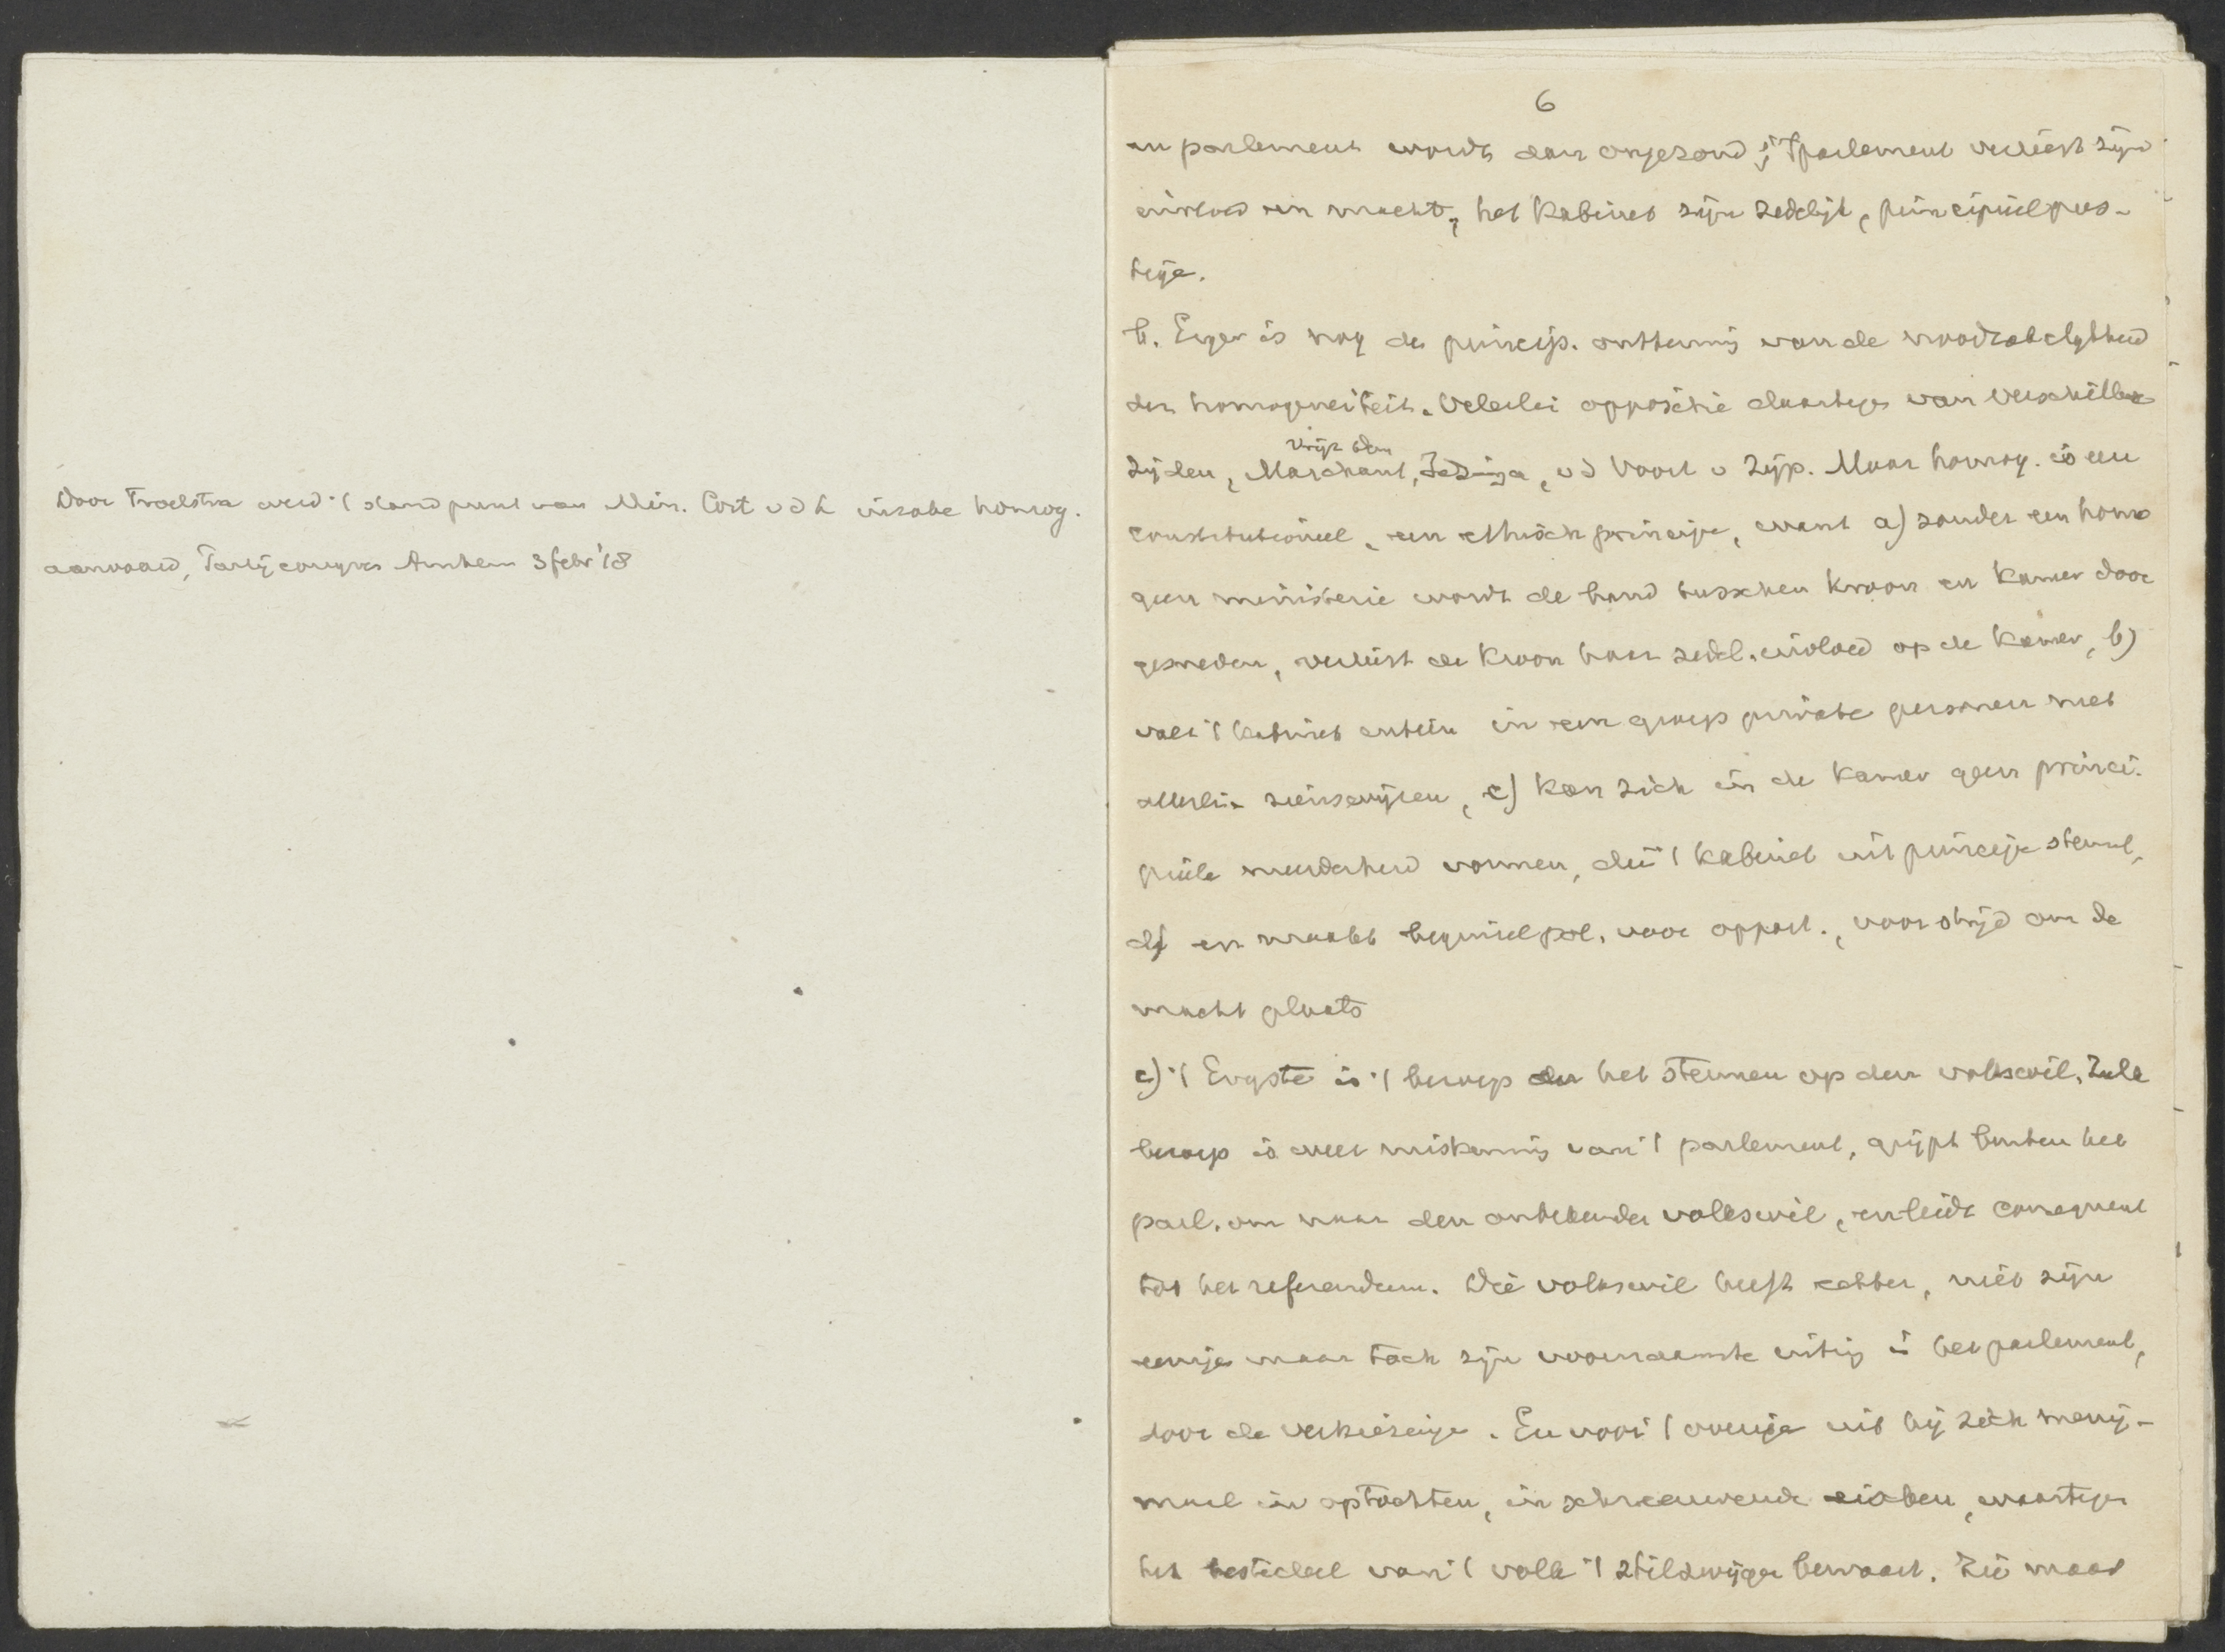 Door Troelstra werd 't standpunt van Min. Cort v d L inzake homog.
aanvaard, Partijcongres Arnhem 3 febr '18
6
en parlement wordt dan ongezond; 't parlement verliest zijn
invloed en macht, het kabinet zijn zedelijk, principieel pres-
tige.
b. Erger is nog de princip. ontkenning van de noodzakelijkheid
der homogeneiteit. Velerlei oppositie daartegen van verschillende
zijden, Marchant, vrijz. dem. v d Voort v Zijp. Maar homog. is een
constitutioneel, een ethisch principe, want a) zonder een homo
geen ministerie wordt de band tusschen Kroon en Kamer door
gesneden, verliest de Kroon haar zedel. invloed op de Kamer, b)
valt 't kabinet uiteen in een groep private personen met
allerlei zienswijzen, c) kan zich in de Kamer geen princi-
pieele meerderheid vormen, die 't kabinet uit principe steunt,
d) en maakt beginselpol. voor opport., voor strijd om de
macht plaats
c) 't Ergste is 't beroep bij het stemmen op den volkswil. Zulk
beroep is weer miskenning van 't parlement, grijpt buiten het
parl. om naar den onbekenden volkswil, en leidt consequent
tot het referendum. Die volkswil heeft echter, niet zijn
eenige maar toch zijn voornaamste uiting in het parlement,
door de verkiezingen. En voor 't overige uit hij zich menig-
maal in optochten, in schreeuwende eischen, waartegen
het beste deel van 't volk 't stilzwijgen bewaart. Zie maar